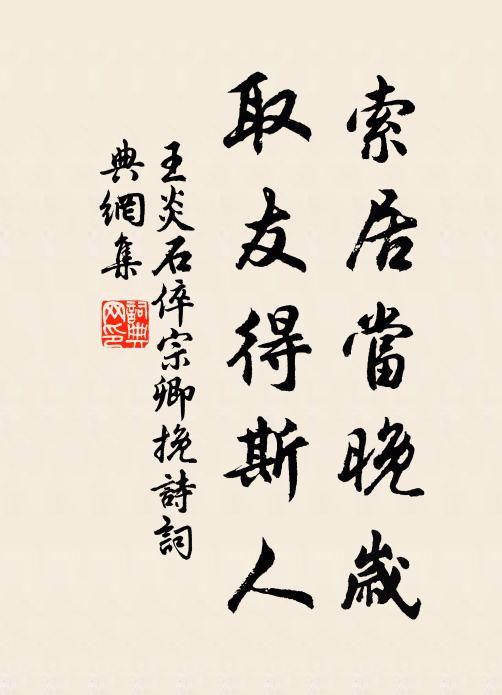 索居當晚歲
取友得斯人
王炎石倅宗卿挽詩詞
典網集
詞典網印